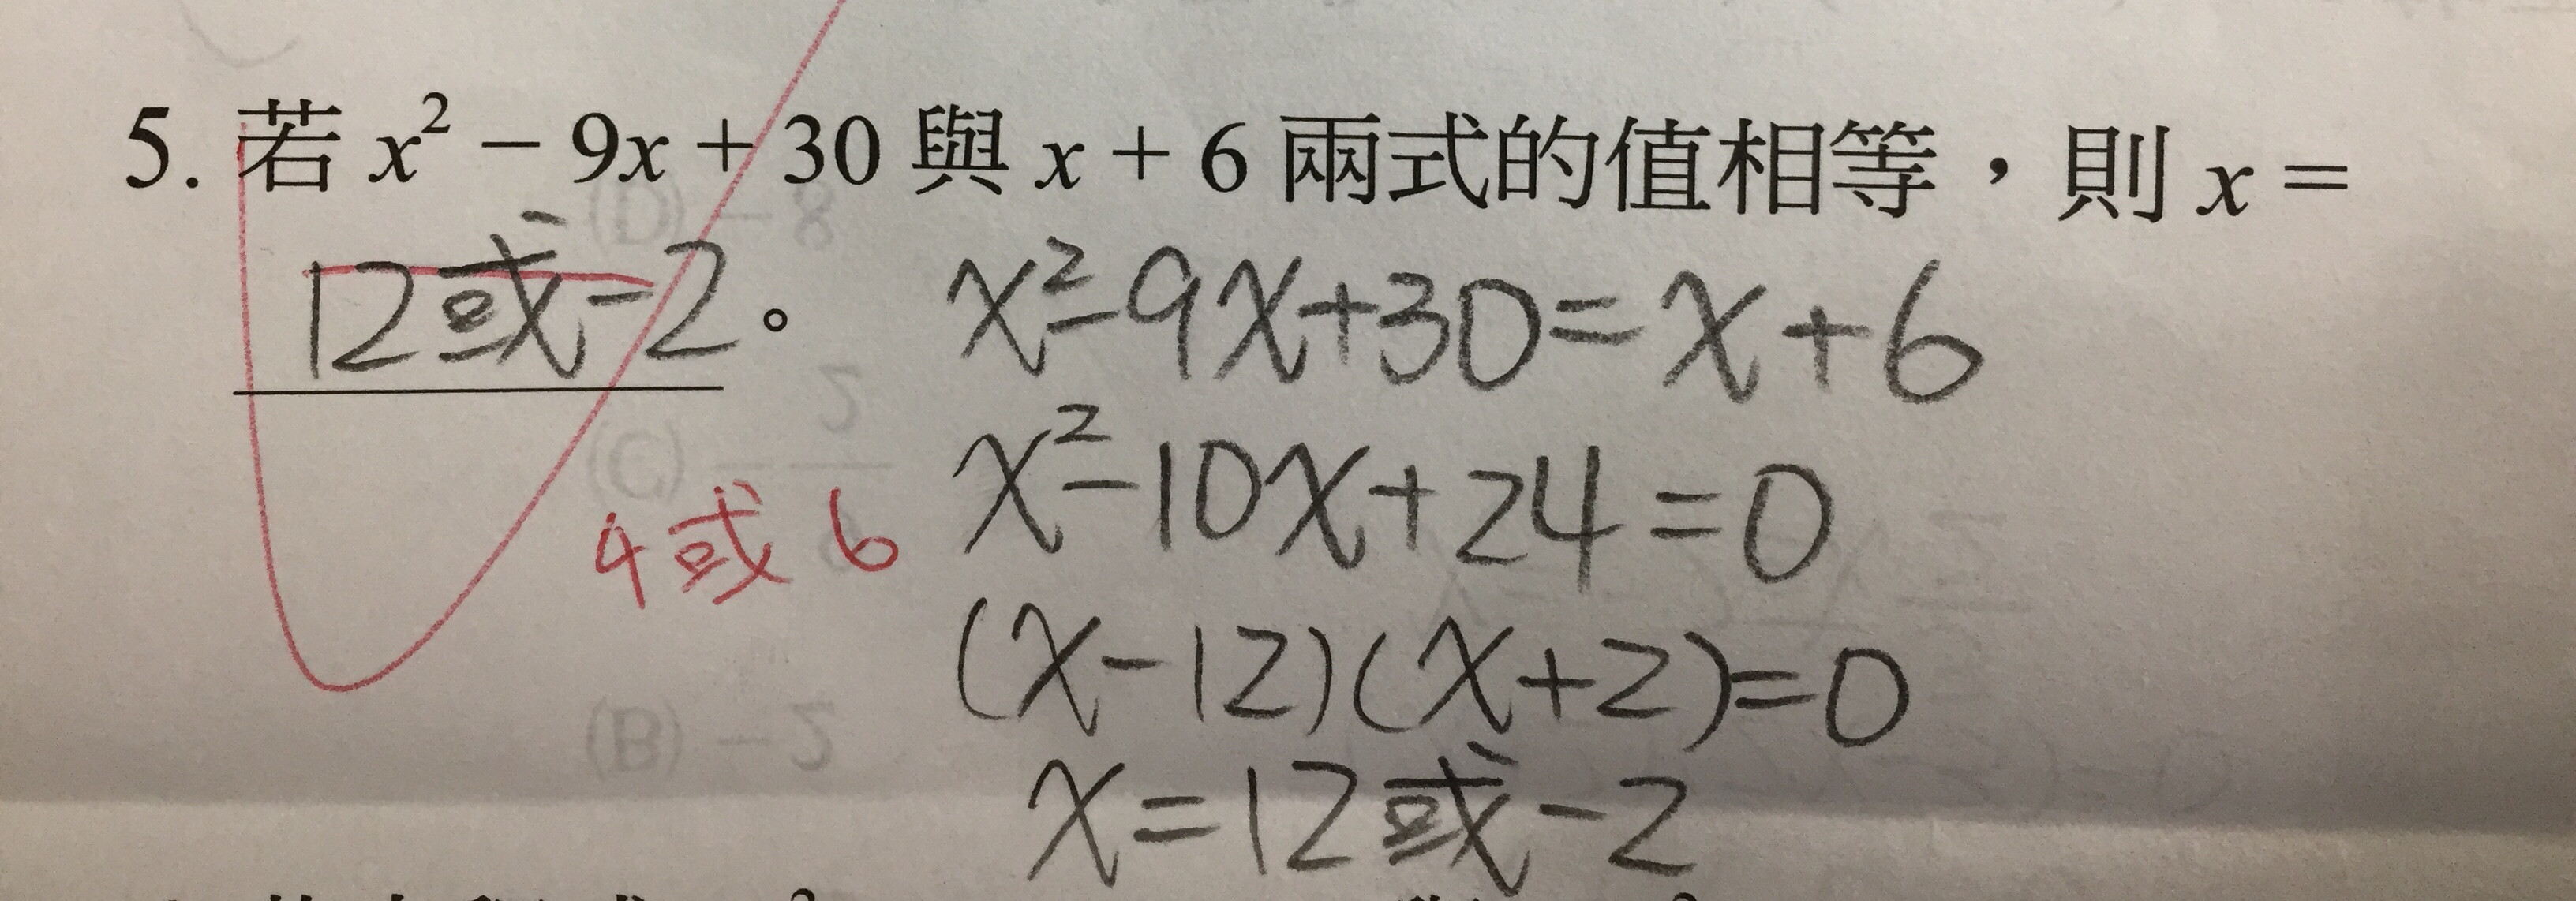 5. 若 x² − 9x + 30 與 x + 6 兩式的值相等，則 x =
12或-2。
x²-9x+30=x+6
x²-10x+24=0
4或6
(x-12)(x+2)=0
x=12或-2